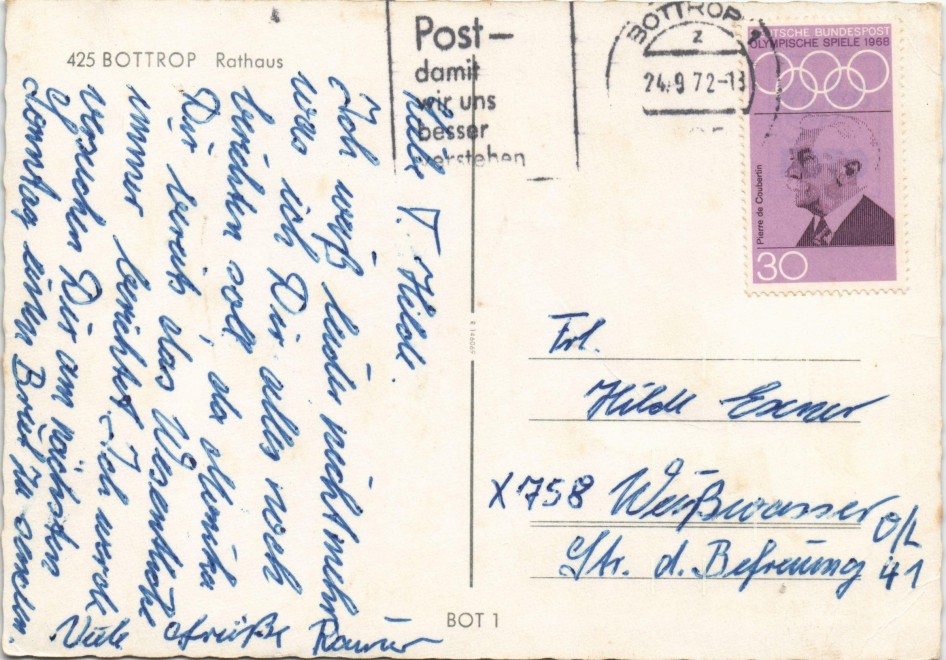 425 BOTTROP Rathaus
Post—
damit
wir uns
besser
verstehen
BOTTROP
z
24.9.72-13
DEUTSCHE BUNDESPOST
OLYMPISCHE SPIELE 1968
Pierre de Coubertin
30
Liebe T. Hilde.
Ich weiß leider nicht mehr
was ich Dir alles noch
berichten soll, da Monika
Dir bereits das Wesentliche
immer berichtet. Ich werde
versuchen Dir am nächsten
Sonntag einen Brief zu
Viele Grüße Rainer
Frl.
Hilde Exner
X758 Weißwasser O/L
Str. d. Befreiung 41
BOT 1